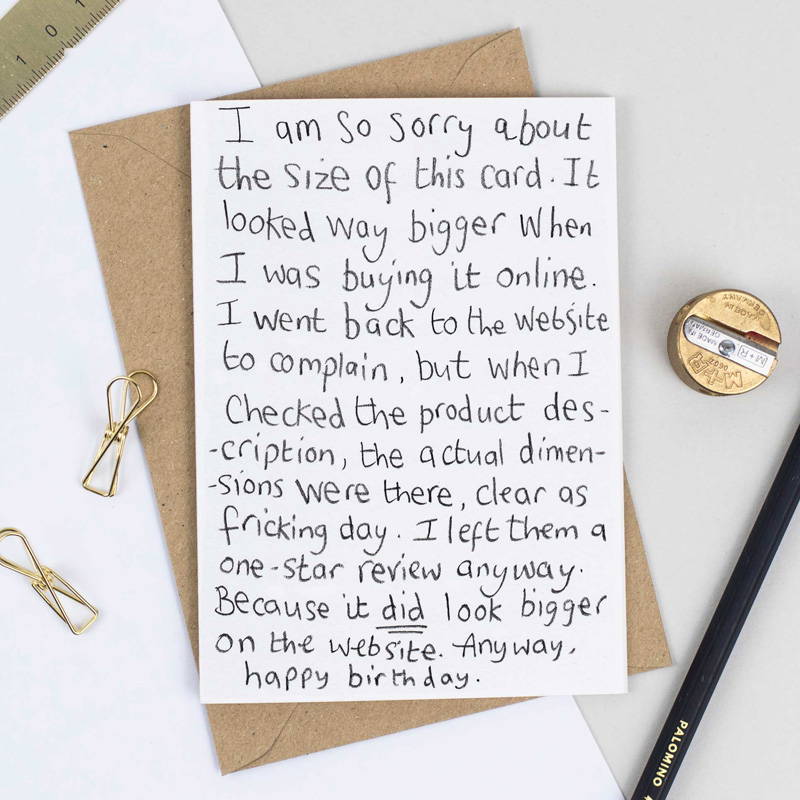 1 0 1
I am so sorry about
the size of this card. It
looked way bigger when
I was buying it online.
I went back to the website
to complain, but when I
checked the product des-
-cription, the actual dimen-
-sions were there, clear as
fricking day. I left them a
one-star review anyway.
Because it did look bigger
on the website. Anyway,
happy birthday.
M+R
MADE IN
GERMANY
PALOMINO